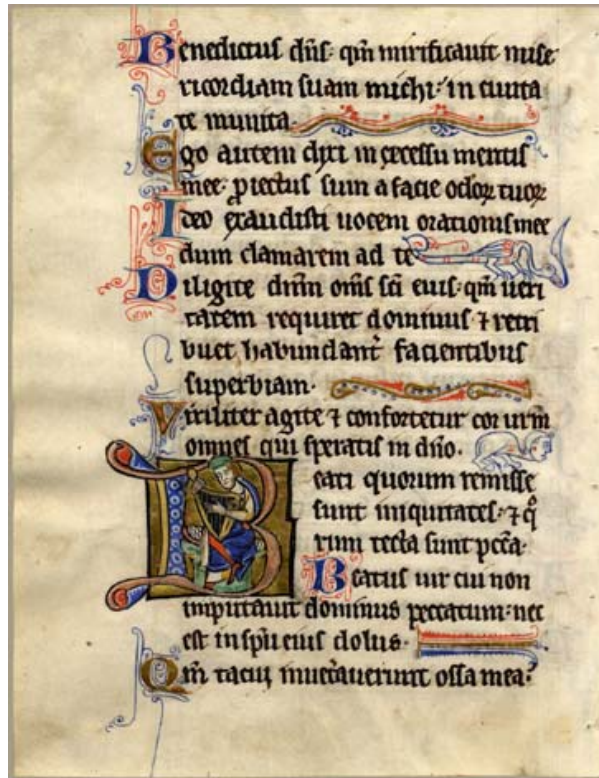 Benedictus dñs: qm̃ mirificauit mise
ricordiam suam michi: in ciuita
te munita.
Ego autem dixi in excessu mentis
mee: ꝓiectus sum a facie oculoꝝ tuoꝝ
Ideo exaudisti uocem orationis mee
dum clamarem ad te
Diligite dñm om̃s sc̃i eius: qm̃ ueri
tatem requiret dominus ⁊ retri
buet habundant̃ facientibus
superbiam.
Viriliter agite ⁊ confortetur cor ur̃m
omnes qui speratis in dño.
Beati quorum remisse
sunt iniquitates: ⁊ q̃
rum tecta sunt pcc̃a.
Beatus uir cui non
imputauit dominus peccatum: nec
est in sp̃u eius dolus.
Qm̃ tacui inuet̃auerunt ossa mea: